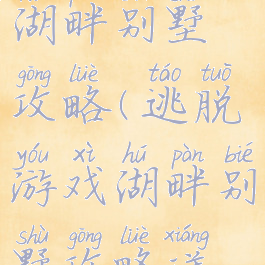 湖畔别墅
gōng lüè táo tuō
攻略(逃脱
yóu xì hú pàn bié
游戏湖畔别
shù gōng lüè xiáng
墅攻略详